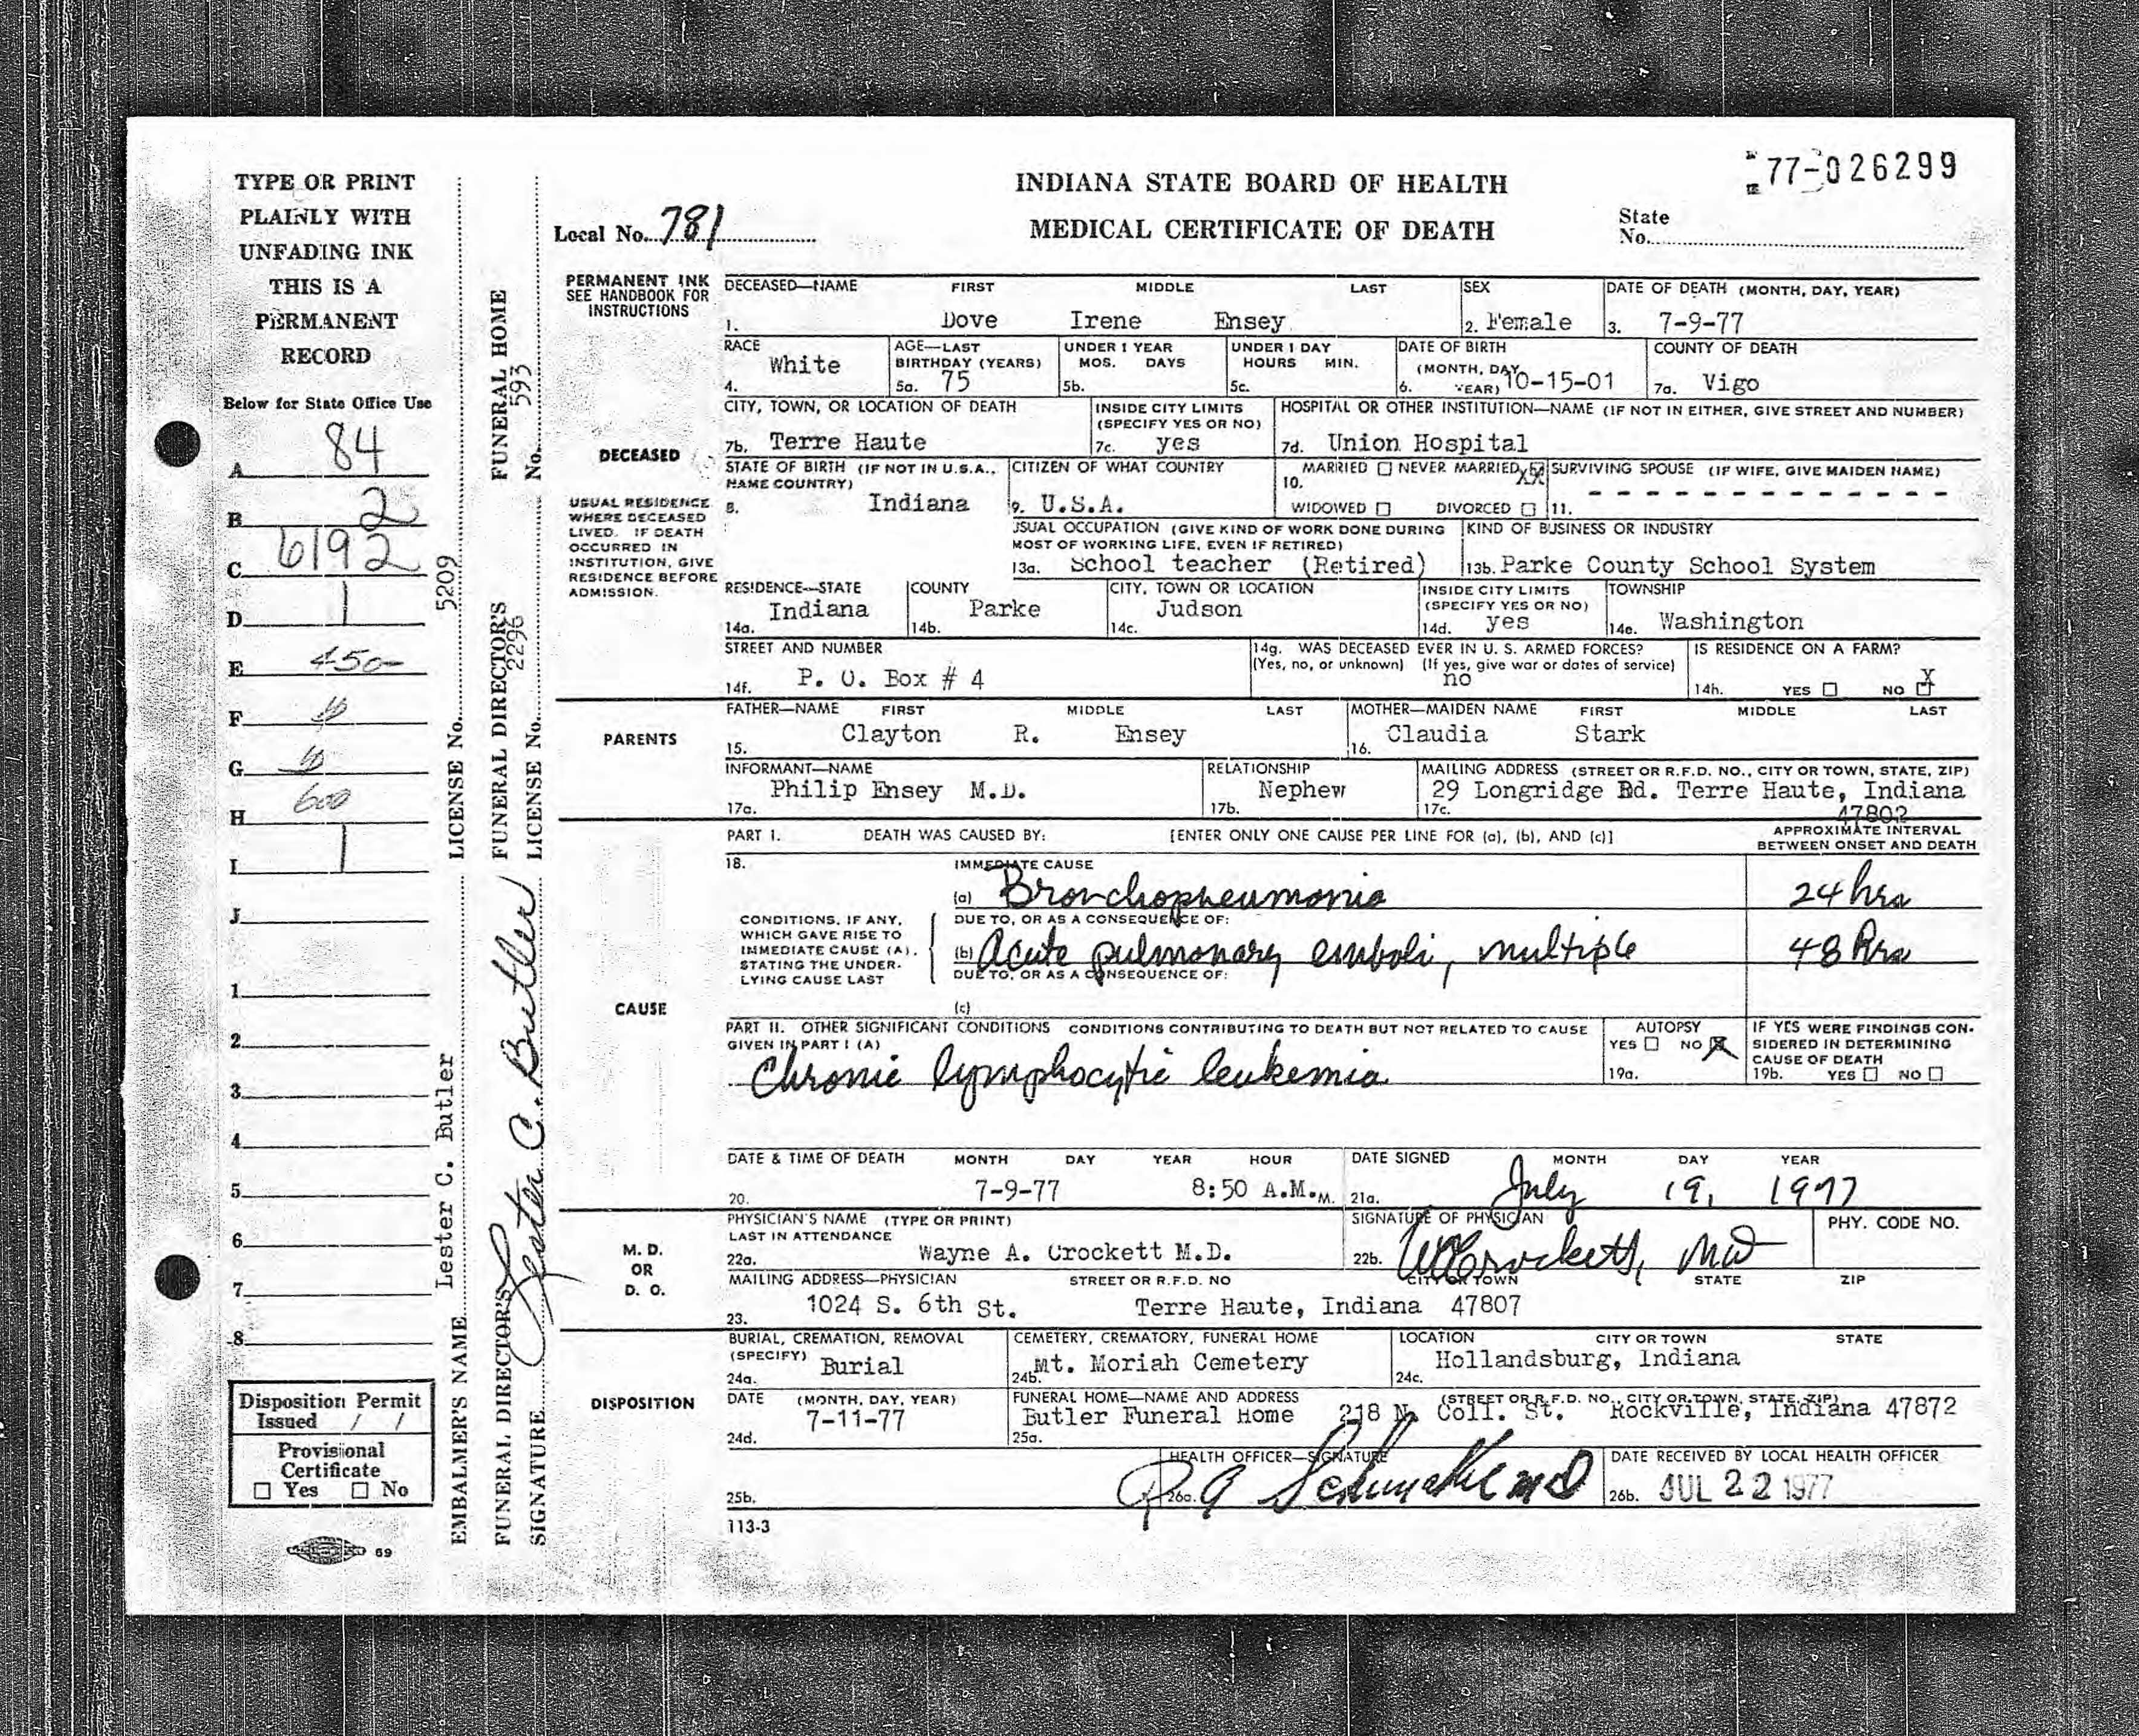 77-026299
INDIANA STATE BOARD OF HEALTH
MEDICAL CERTIFICATE OF DEATH
Local No. 781
State
No.
TYPE OR PRINT
PLAINLY WITH
UNFADING INK
THIS IS A
PERMANENT
RECORD
Below for State Office Use
A 84
B 2
C 6192
D 1
E 450-
F
G
H 600
I 1
J
1
2
3
4
5
6
7
8
Disposition Permit
Issued / /
Provisional
Certificate
☐ Yes ☐ No
69
EMBALMER'S NAME Lester C. Butler LICENSE No. 5209
FUNERAL DIRECTOR'S SIGNATURE Lester C. Butler
FUNERAL DIRECTOR'S LICENSE No. 2296
FUNERAL HOME No. 593
PERMANENT INK
SEE HANDBOOK FOR
INSTRUCTIONS
DECEASED
USUAL RESIDENCE
WHERE DECEASED
LIVED. IF DEATH
OCCURRED IN
INSTITUTION, GIVE
RESIDENCE BEFORE
ADMISSION.
DECEASED—NAME FIRST MIDDLE LAST SEX DATE OF DEATH (MONTH, DAY, YEAR)
1. Dove Irene Ensey 2. Female 3. 7-9-77
RACE AGE—LAST BIRTHDAY (YEARS) UNDER 1 YEAR MOS. DAYS UNDER 1 DAY HOURS MIN. DATE OF BIRTH (MONTH, DAY, YEAR) COUNTY OF DEATH
4. White 5a. 75 5b. 5c. 6. 10-15-01 7a. Vigo
CITY, TOWN, OR LOCATION OF DEATH INSIDE CITY LIMITS (SPECIFY YES OR NO) HOSPITAL OR OTHER INSTITUTION—NAME (IF NOT IN EITHER, GIVE STREET AND NUMBER)
7b. Terre Haute 7c. yes 7d. Union Hospital
STATE OF BIRTH (IF NOT IN U.S.A., NAME COUNTRY) CITIZEN OF WHAT COUNTRY MARRIED ☐ NEVER MARRIED XX SURVIVING SPOUSE (IF WIFE, GIVE MAIDEN NAME)
8. Indiana 9. U.S.A. 10. WIDOWED ☐ DIVORCED ☐ 11. - - - - - - - - - - - - -
USUAL OCCUPATION (GIVE KIND OF WORK DONE DURING MOST OF WORKING LIFE, EVEN IF RETIRED) KIND OF BUSINESS OR INDUSTRY
13a. School teacher (Retired) 13b. Parke County School System
RESIDENCE—STATE COUNTY CITY, TOWN OR LOCATION INSIDE CITY LIMITS (SPECIFY YES OR NO) TOWNSHIP
14a. Indiana 14b. Parke 14c. Judson 14d. yes 14e. Washington
STREET AND NUMBER 14g. WAS DECEASED EVER IN U. S. ARMED FORCES? (Yes, no, or unknown) (If yes, give war or dates of service) IS RESIDENCE ON A FARM?
14f. P. O. Box # 4 no 14h. YES ☐ NO X
PARENTS
FATHER—NAME FIRST MIDDLE LAST MOTHER—MAIDEN NAME FIRST MIDDLE LAST
15. Clayton R. Ensey 16. Claudia Stark
INFORMANT—NAME RELATIONSHIP MAILING ADDRESS (STREET OR R.F.D. NO., CITY OR TOWN, STATE, ZIP)
17a. Philip Ensey M.D. 17b. Nephew 17c. 29 Longridge Rd. Terre Haute, Indiana
47802
PART I. DEATH WAS CAUSED BY: [ENTER ONLY ONE CAUSE PER LINE FOR (a), (b), AND (c)] APPROXIMATE INTERVAL BETWEEN ONSET AND DEATH
18. IMMEDIATE CAUSE
(a) Bronchopneumonia 24 hrs
CAUSE
CONDITIONS, IF ANY,
WHICH GAVE RISE TO
IMMEDIATE CAUSE (A),
STATING THE UNDER-
LYING CAUSE LAST
DUE TO, OR AS A CONSEQUENCE OF:
(b) Acute pulmonary emboli, multiple 48 hrs
DUE TO, OR AS A CONSEQUENCE OF:
(c)
PART II. OTHER SIGNIFICANT CONDITIONS CONDITIONS CONTRIBUTING TO DEATH BUT NOT RELATED TO CAUSE GIVEN IN PART I (A)
Chronic lymphocytic leukemia
AUTOPSY
YES ☐ NO X
19a.
IF YES WERE FINDINGS CON-
SIDERED IN DETERMINING
CAUSE OF DEATH
19b. YES ☐ NO ☐
DATE & TIME OF DEATH MONTH DAY YEAR HOUR DATE SIGNED MONTH DAY YEAR
20. 7-9-77 8:50 A.M. M. 21a. July 19, 1977
M. D.
OR
D. O.
PHYSICIAN'S NAME (TYPE OR PRINT) LAST IN ATTENDANCE SIGNATURE OF PHYSICIAN PHY. CODE NO.
22a. Wayne A. Crockett M.D. 22b. WACrockett, MD
MAILING ADDRESS—PHYSICIAN STREET OR R.F.D. NO CITY OR TOWN STATE ZIP
23. 1024 S. 6th St. Terre Haute, Indiana 47807
DISPOSITION
BURIAL, CREMATION, REMOVAL (SPECIFY) CEMETERY, CREMATORY, FUNERAL HOME LOCATION CITY OR TOWN STATE
24a. Burial 24b. Mt. Moriah Cemetery 24c. Hollandsburg, Indiana
DATE (MONTH, DAY, YEAR) FUNERAL HOME—NAME AND ADDRESS (STREET OR R.F.D. NO., CITY OR TOWN, STATE, ZIP)
24d. 7-11-77 25a. Butler Funeral Home 218 N. Coll. St. Rockville, Indiana 47872
HEALTH OFFICER—SIGNATURE DATE RECEIVED BY LOCAL HEALTH OFFICER
25b. 26a. 26b. JUL 22 1977
113-3